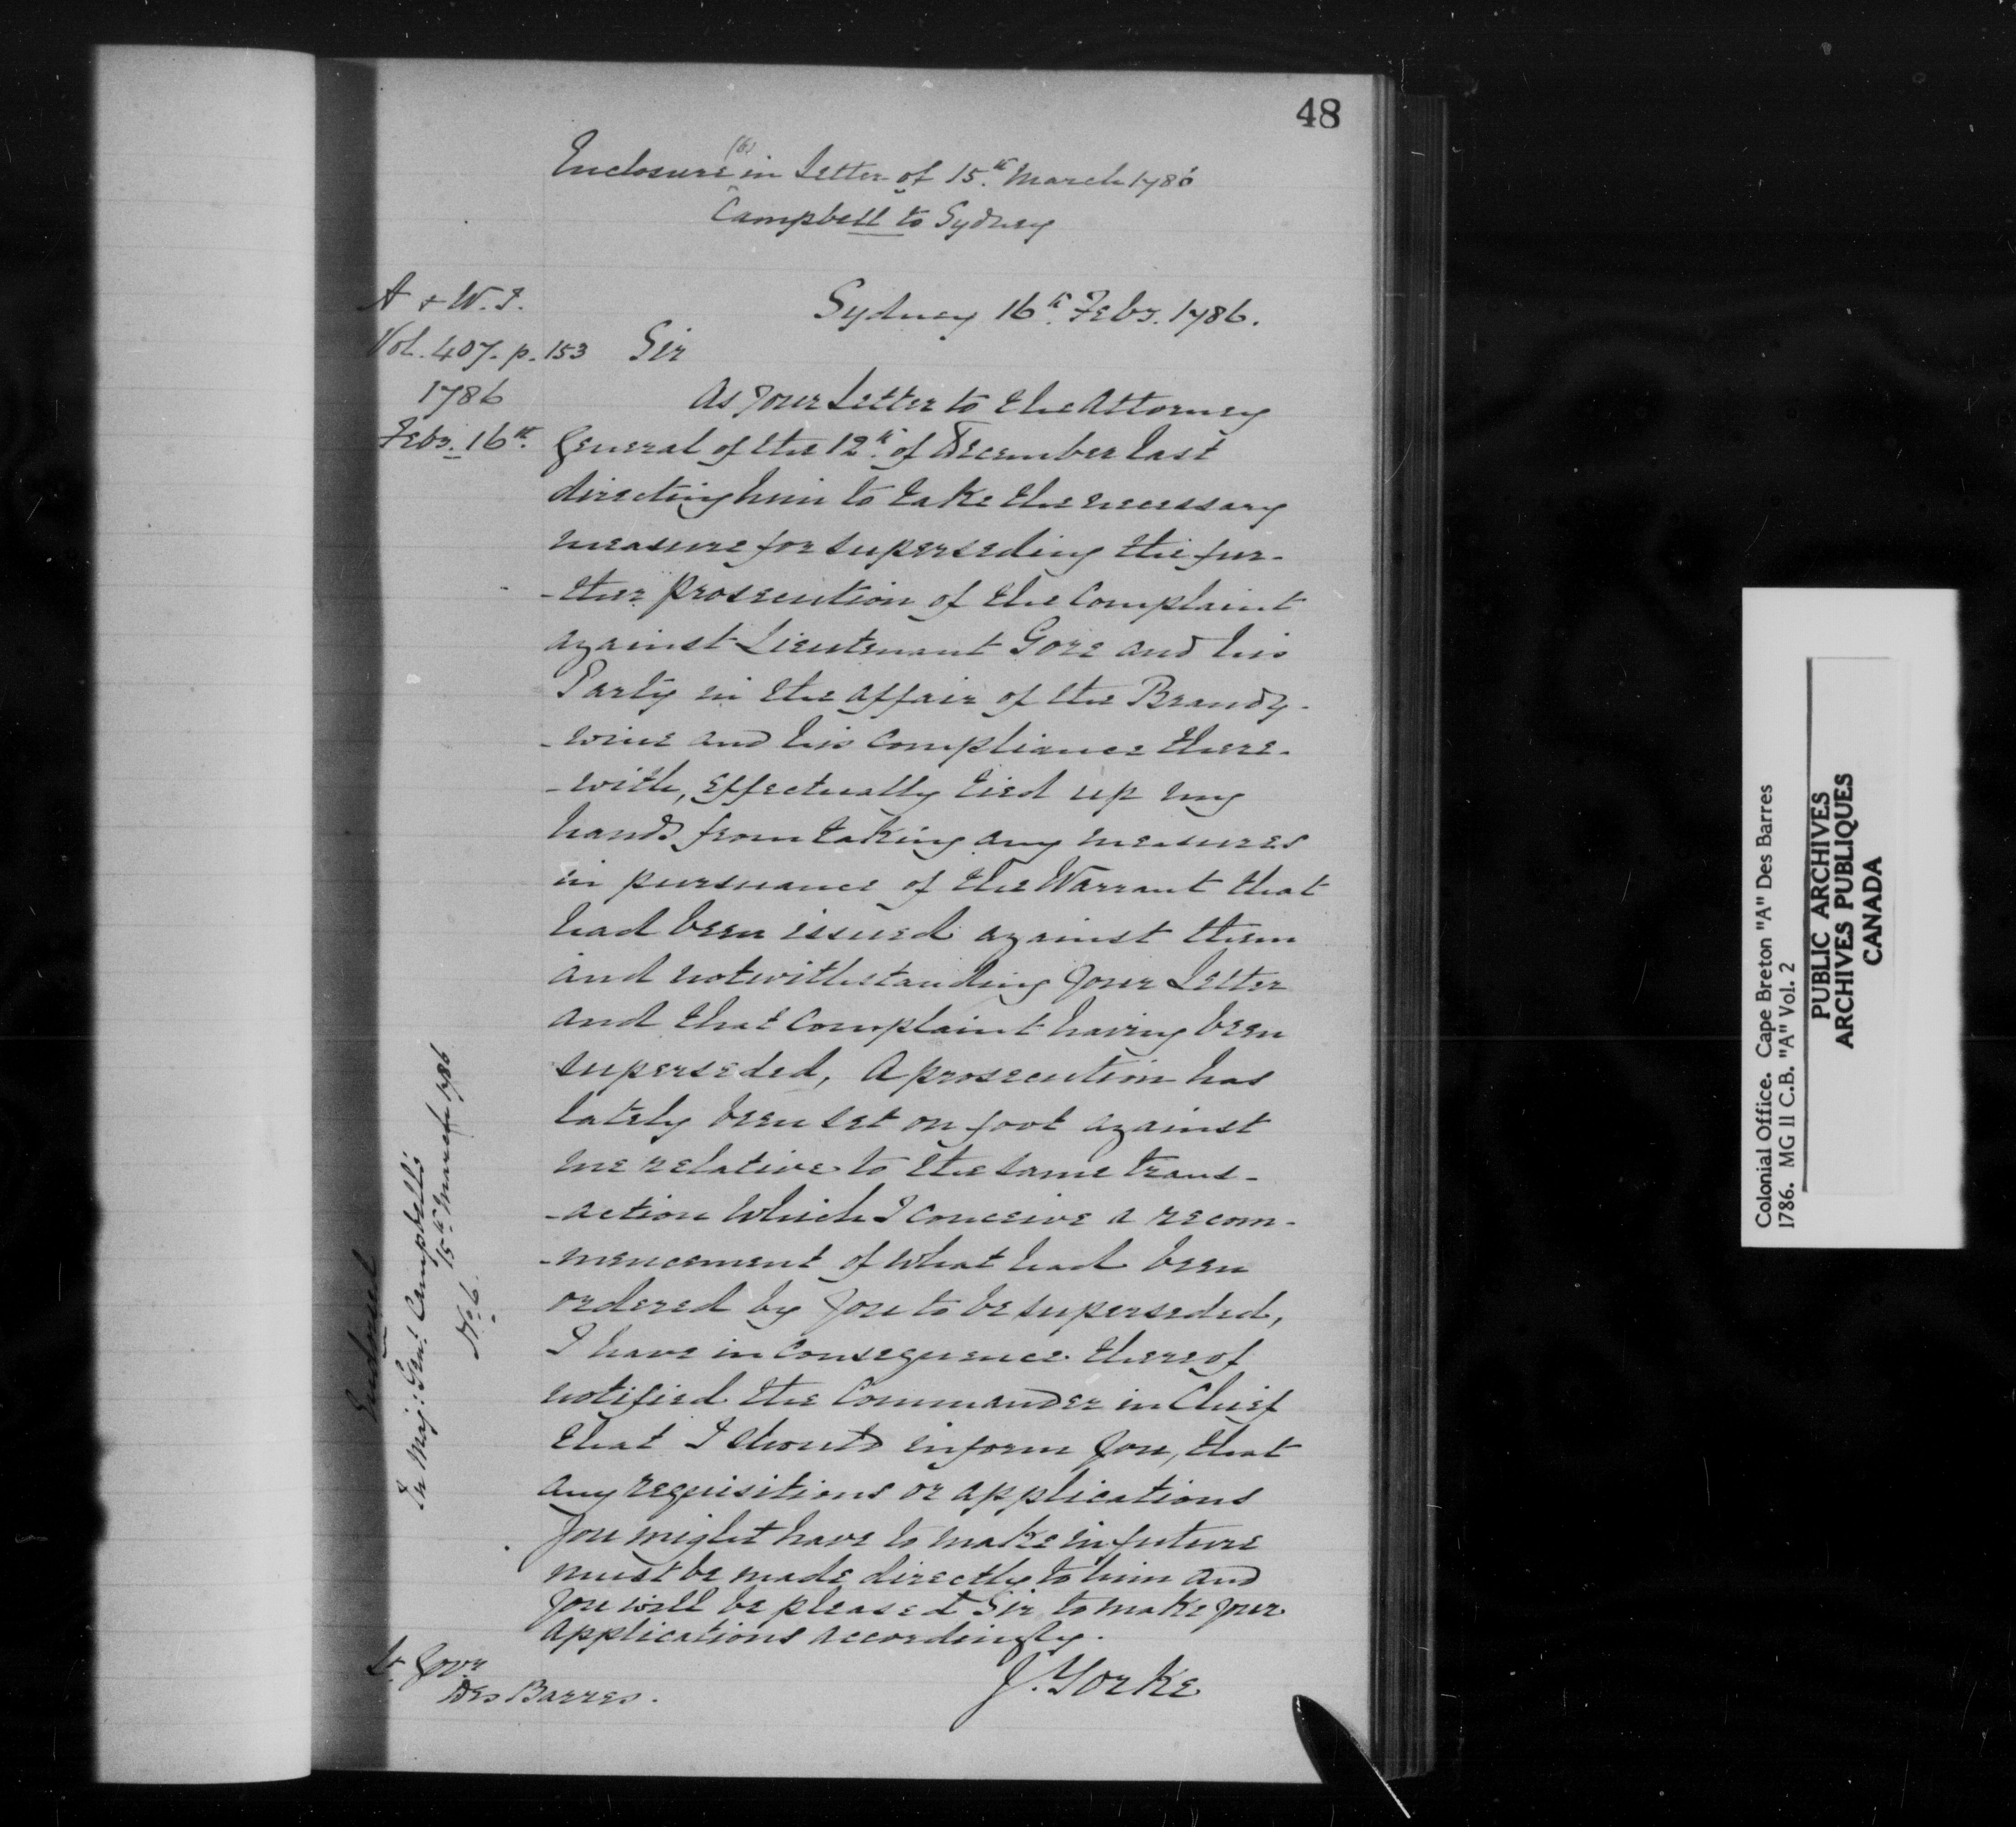 48
Enclosure (6) in Letter of 15th March 1786
Campbell to Sydney
A & W.I.
Vol. 407. p. 153
1786
Feby. 16th
Sydney 16th Feby. 1786.
Sir
As your Letter to the Attorney
General of the 12th of December last
directing him to take the necessary
measure for superseding the fur-
-ther prosecution of the Complaint
against Lieutenant Gore and his
Party in the affair of the Brandy-
-wine and his compliance there-
-with, effectually tied up my
hands from taking any measures
in pursuance of the Warrant that
had been issued against them
and notwithstanding your Letter
and that Complaint having been
superseded, a prosecution has
lately been set on foot against
me relative to the same trans-
-action which I conceive a recom-
-mencement of what had been
ordered by you to be superseded,
I have in consequence thereof
notified the Commander in Chief
that I should inform you, that
any requisitions or applications
you might have to make in future
must be made directly to him and
you will be pleased Sir to make your
applications accordingly.
J. Yorke
Lt. Govr
Des Barres.
Endorsed
In Maj: Genl Campbell's
15th March 1786
No 6.
Colonial Office. Cape Breton "A" Des Barres
1786. MG 11 C.B. "A" Vol. 2
PUBLIC ARCHIVES
ARCHIVES PUBLIQUES
CANADA